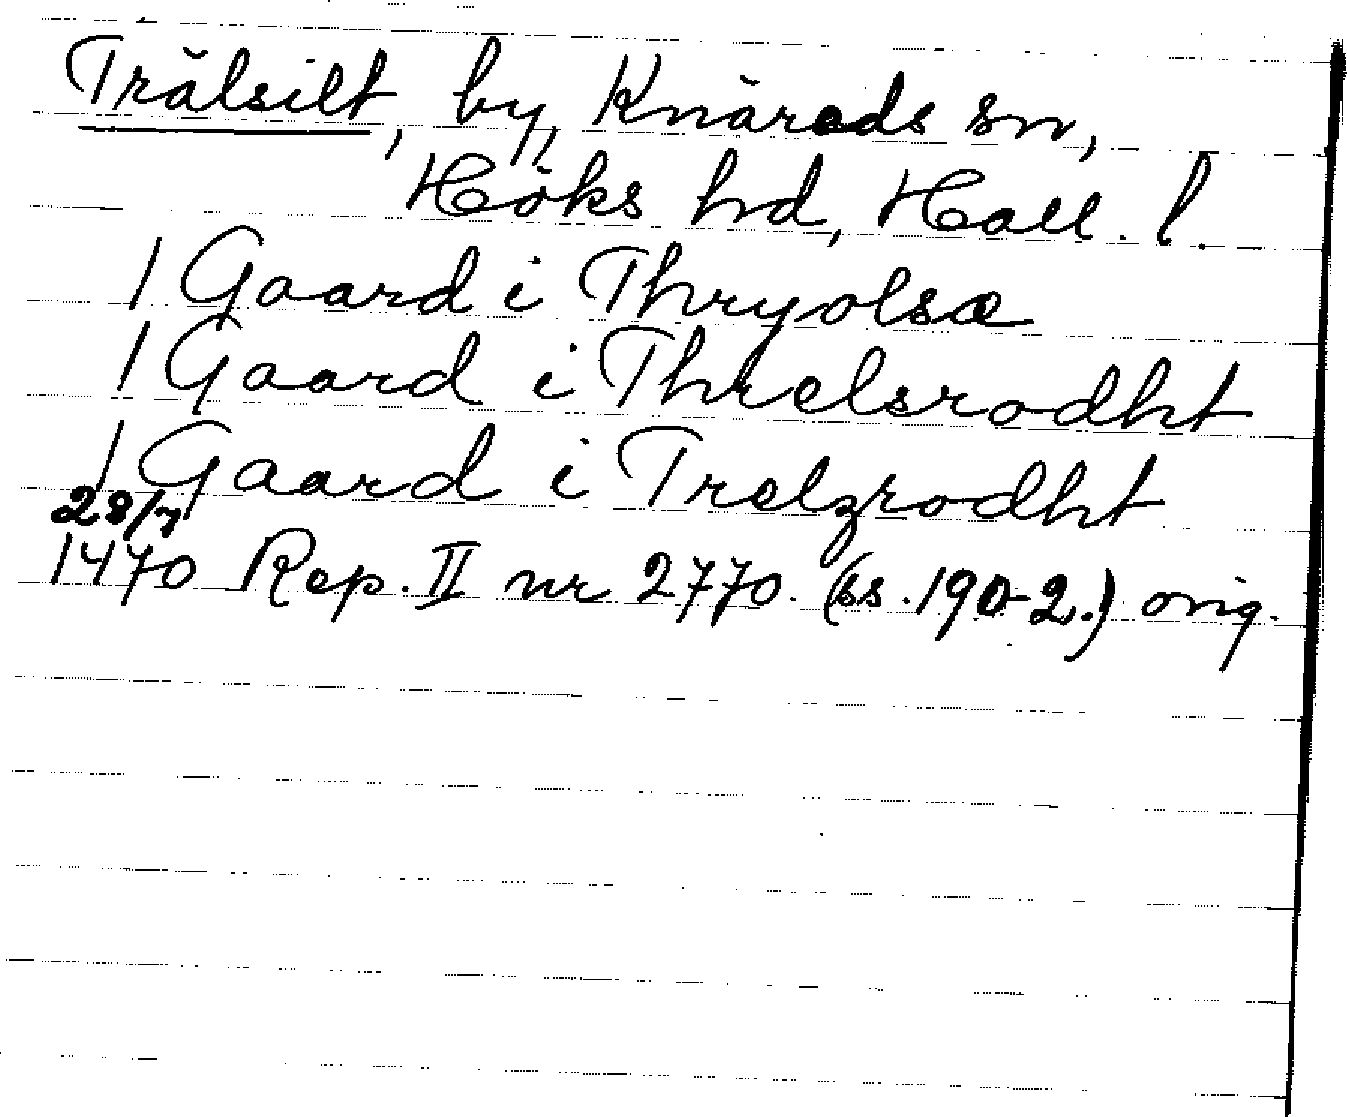 Trälsilt, by, Knäreds sn,
Höks hd, Hall. l.
1 Gaard i Thryolsæ
1 Gaard i Threlsrodht
1 Gaard i Trelzrodht
28/7
1470 Rep. II nr 2770. (ss. 190-2.) orig.